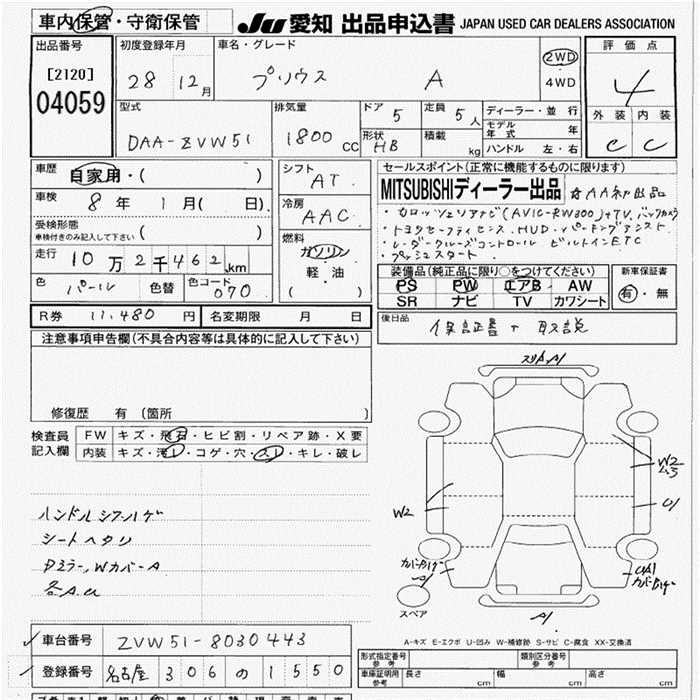 車内保管・守衛保管
JU 愛知 出品申込書 JAPAN USED CAR DEALERS ASSOCIATION
出品番号 初度登録年月 車名・グレード 評価点
[2120] 28 12月 プリウス A 2WD 4
04059 4WD
外装 内装
型式 排気量 ドア 5 定員 5人 ディーラー・並行
DAA-ZVW51 1800cc 形状 HB 積載 kg モデル年式 年 C C
ハンドル 左・右
車歴 自家用・( ) シフト AT セールスポイント(正常に機能するものに限ります)
車検 8年 1月( 日) 冷房 AAC MITSUBISHIディーラー出品 名AA初出品
受検形態 ・カロッツェリアナビ(AVIC-RW300)+TV、バックカメラ
車検付きのみ記入して下さい( ) 燃料 ・トヨタセーフティセンス、HUD、パーキングアシスト
走行 10万2千462km ガソリン ・レーダークルーズコントロール ビルトインETC
軽・油 ・プッシュスタート
色 パール 色替 色コード 070 ( ) 装備品(純正品に限り○をつけてください) 新車保証書
PS PW エアB AW 有・無
SR ナビ TV カワシート
R券 11,480円 名変期限 月 日 後日品
保証書 取説
注意事項申告欄(不具合内容等は具体的に記入して下さい)
修復歴 有 (箇所 )
検査員 FW キズ・飛石・ヒビ割・リペア跡・X要
記入欄 内装 キズ・汚レ・コゲ・穴・スレ・キレ・破レ
W2
W2
ハンドルシフトハゲ
シートヘタリ
Dミラー、WカバーA
各A.U
スペア
A-キズ E-エクボ U-凹み W-補修跡 S-サビ C-腐食 XX-交換済
車台番号 ZVW51-8030443
登録番号 名古屋 306 の 1550
形式指定番号 参考 類別区分番号 参考
車庫証明用 参考 長さ cm 幅 cm 高さ cm